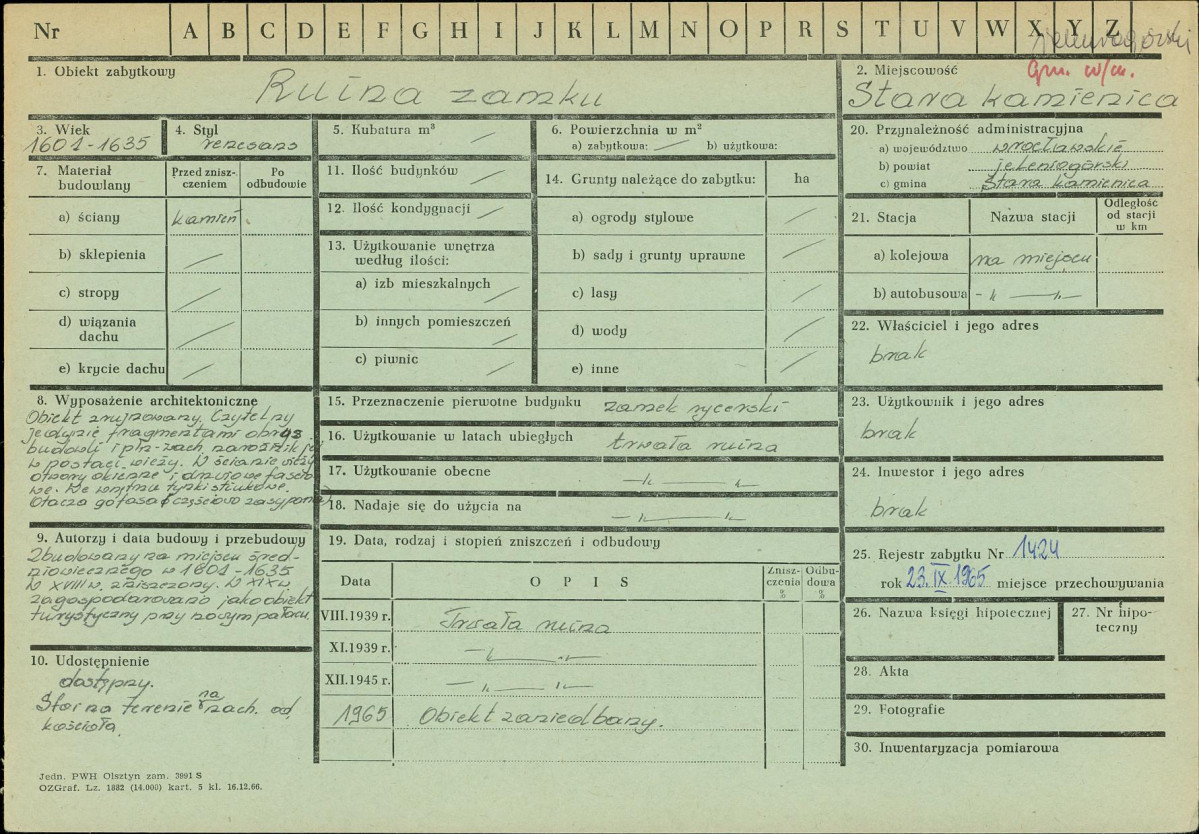 Nr A B C D E F G H I J K L M N O P R S T U V W X Y Z
1. Obiekt zabytkowy
Ruina zamku
2. Miejscowość
Gm. w/m.
Stara kamienica
3. Wiek
1601-1635
4. Styl
renesans
5. Kubatura m³
6. Powierzchnia w m²
a) zabytkowa: b) użytkowa:
7. Materiał budowlany
Przed zniszczeniem
Po odbudowie
a) ściany kamień
b) sklepienia
c) stropy
d) wiązania dachu
e) krycie dachu
11. Ilość budynków
12. Ilość kondygnacji
13. Użytkowanie wnętrza
według ilości:
a) izb mieszkalnych
b) innych pomieszczeń
c) piwnic
14. Grunty należące do zabytku: ha
a) ogrody stylowe
b) sady i grunty uprawne
c) lasy
d) wody
e) inne
20. Przynależność administracyjna
a) województwo wrocławskie
b) powiat jeleniogórski
c) gmina Stara kamienica
21. Stacja Nazwa stacji
Odległość
od stacji
w km
a) kolejowa na miejscu
b) autobusowa - " - "
22. Właściciel i jego adres
brak
23. Użytkownik i jego adres
brak
24. Inwestor i jego adres
brak
8. Wyposażenie architektoniczne
Obiekt zrujnowany. Czytelny
jedynie fragmentami obrys
budowli i płn-zach. narożnik jej
w postaci wieży. W ścianie wieży
otwory okienne i drzwiowe
we. We wnętrzu tynki stiukowe.
Otacza go fosa częściowo zasypana
15. Przeznaczenie pierwotne budynku zamek rycerski
16. Użytkowanie w latach ubiegłych trwała ruina
17. Użytkowanie obecne - " -
18. Nadaje się do użycia na - " - "
9. Autorzy i data budowy i przebudowy
Zbudowany na miejscu śred-
niowiecznego w 1601-1635
W XVIII w. zniszczony. W XIX w.
zagospodarowano jako obiekt
turystyczny przy nowym pałacu
10. Udostępnienie
dostępny.
Stoi na terenie na zach. od
kościoła.
19. Data, rodzaj i stopień zniszczeń i odbudowy
Data O P I S
Zniszczenia %
Odbudowa %
VIII.1939 r. Trwała ruina
XI.1939 r. - " - " -
XII.1945 r. - " - " -
1965 Obiekt zaniedbany.
25. Rejestr zabytku Nr 1424
rok 23.IX.1965 miejsce przechowywania
26. Nazwa księgi hipotecznej
27. Nr hipoteczny
28. Akta
29. Fotografie
30. Inwentaryzacja pomiarowa
Jedn. PWH Olsztyn zam. 3991 S
OZGraf. Lz. 1882 (14.000) kart. 5 kl. 16.12.66.